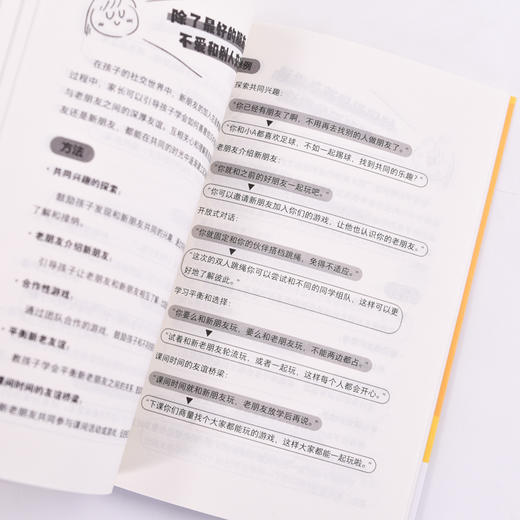 除了最好的朋
不爱和别人
在孩子的社交世界中，新朋友的加入
过程中，家长可以引导孩子学会如何
与老朋友之间的深厚友谊，互相关心和
友还是新朋友，都能在共同的时光中
方法
·共同兴趣的探索：
鼓励孩子发现和新朋友共同的兴趣
了解和接纳。
·老朋友介绍新朋友：
引导孩子让老朋友和新朋友相互了解
·合作性游戏：
通过团队合作的游戏，鼓励孩子和不同
·平衡新老友谊：
教孩子学会平衡新老朋友之间的关系
课间时间的友谊桥梁：
新老朋友共同参与课间活动或游戏
例
探索共同兴趣：
“你已经有朋友了啊，不用再去找别的人做朋友了。”
“你和小A都喜欢足球，不如一起踢球，找到共同的乐趣？”
老朋友介绍新朋友：
“你就和之前的好朋友一起玩吧。”
“你可以邀请新朋友加入你们的游戏，让他也认识你的老朋友。”
开放式对话：
“你就固定和你的伙伴搭档跳绳，免得不适应。”
“这次的双人跳绳你可以尝试和不同的同学组队，这样可以更
好地了解彼此。”
学习平衡和选择：
“你要么和新朋友玩，要么和老朋友玩，不能两边都占。”
“试着和新老朋友轮流玩，或者一起玩，这样每个人都会开心。”
课间时间的友谊桥梁：
“课间时间就和新朋友玩，老朋友放学后再说。”
“下课你们商量找个大家都能玩的游戏，这样大家都能一起玩啦。”